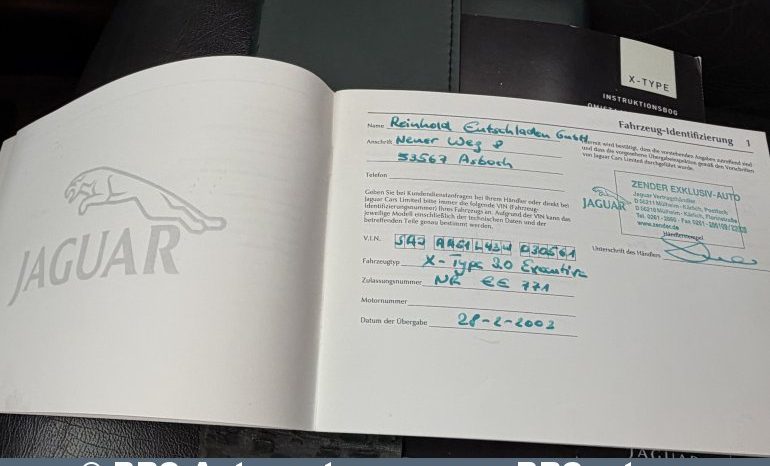 X-TYPE
INSTRUKTIONSBOG
JAGUAR
Fahrzeug-Identifizierung 1
Name Reinhold Entschladen GmbH
Anschrift Neuer Weg 8
53567 Asbach
Telefon
Geben Sie bei Kundendienstanfragen bei Ihrem Händler oder direkt bei
Jaguar Cars Limited bitte immer die folgende VIN (Fahrzeug-
Identifizierungsnummer) Ihres Fahrzeugs an. Aufgrund der VIN kann das
jeweilige Modell einschließlich der technischen Daten und der
betreffenden Teile genau bestimmt werden.
V.I.N.
Fahrzeugtyp X-Type 3.0 Executive
Zulassungsnummer NR EE 771
Motornummer
Datum der Übergabe 28-2-2002
Hiermit wird bestätigt, dass die vorstehenden Angaben zutreffend sind
und dass die vorgesehene Übergabeinspektion gemäß den Vorschriften
von Jaguar Cars Limited durchgeführt wurde.
JAGUAR
ZENDER EXKLUSIV-AUTO
Jaguar Vertragshändler
www.zender.de
Händlerstempel
Unterschrift des Händlers
JAGUAR